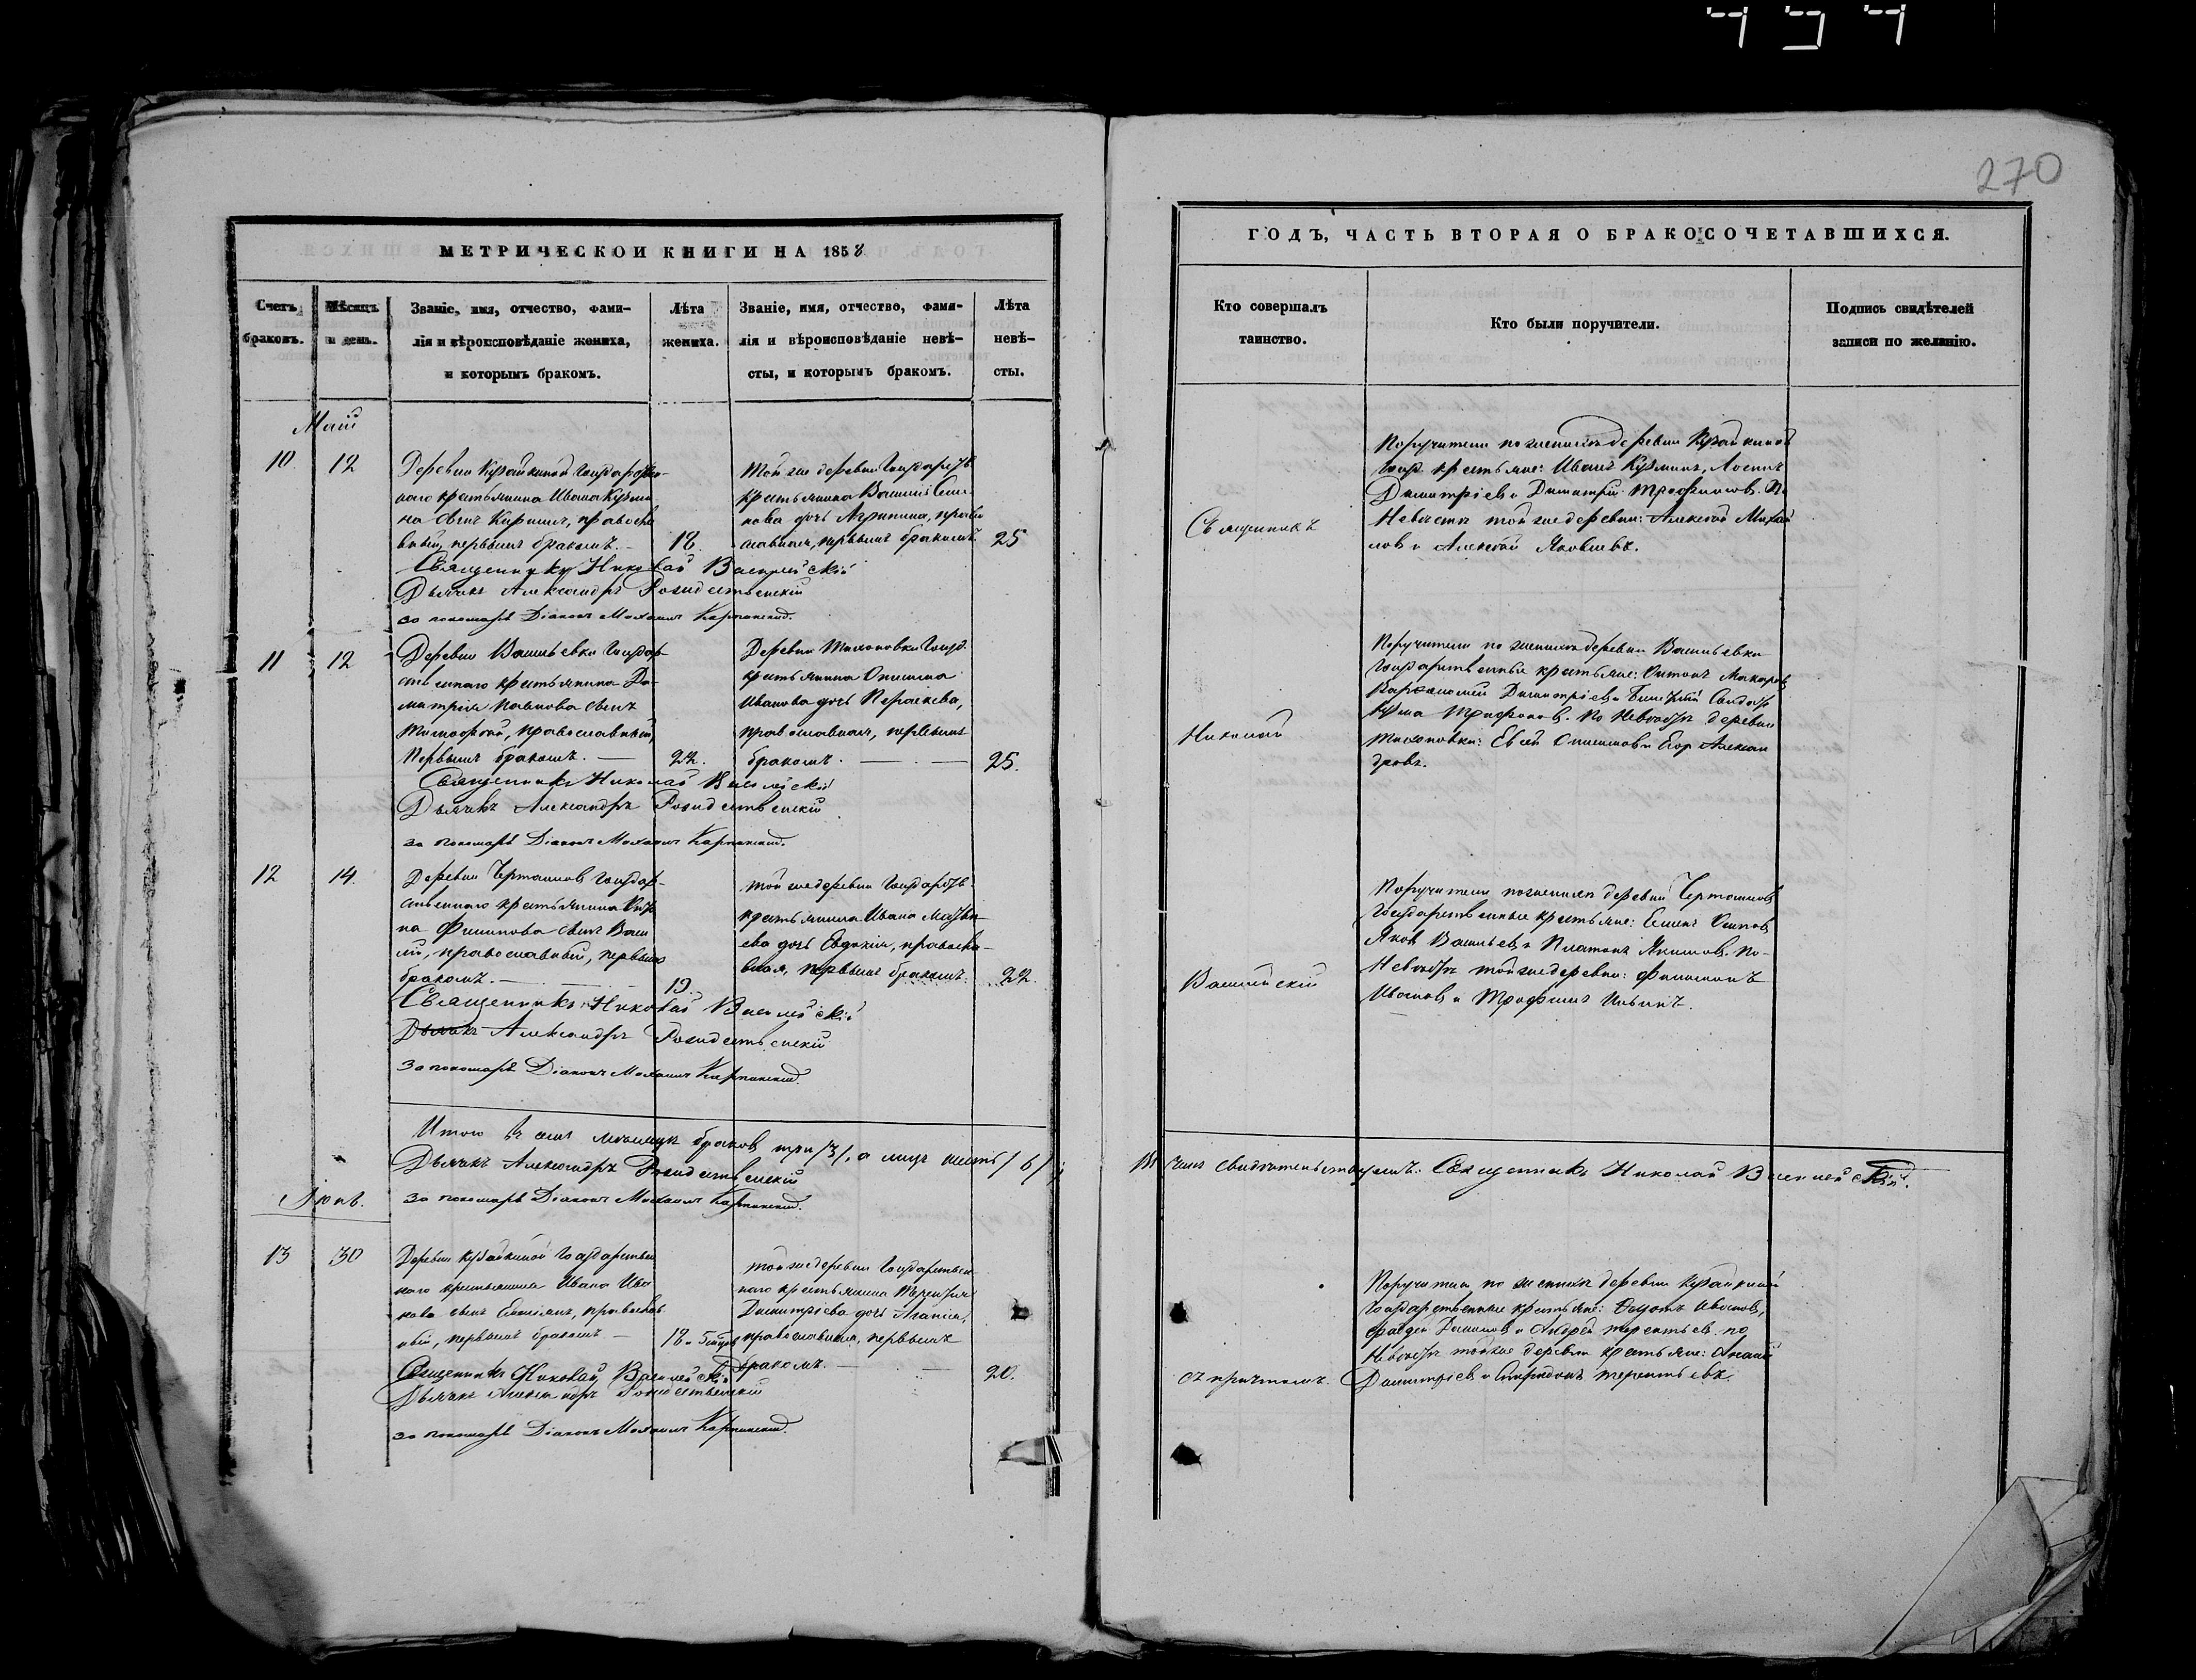 270
МЕТРИЧЕСКОЙ КНИГИ НА 1858
Счетъ браковъ.
Мѣсяцъ и день.
Званіе, имя, отчество, фами-
лія и вѣроисповѣданіе жениха,
и которымъ бракомъ.
Лѣта
жениха.
Званіе, имя, отчество, фами-
лія и вѣроисповѣданіе невѣ-
сты, и которымъ бракомъ.
Лѣта
невѣ-
сты.
Маій
10. 12
Деревни Кузайкиной Государствен-
наго крестьянина Ивана Кузми
на сынъ Кирилъ, правосла
вный, первымъ бракомъ. 18.
Той же деревни Государств.
крестьянина Василія Семе-
нова дочь Агрипина, право
славная, первымъ бракомъ. 25
Священникъ Николай
Дьячекъ Александръ Рождественскій
за пономаря Діаконъ Михаилъ Карпинскій.
11 12
Деревни Васильевки Государ-
ственнаго крестьянина Ди-
митрія Павлова сынъ
Тимофей, православный,
первымъ бракомъ. — 22.
Деревни Тихоновки Госуд.
крестьянина Онисима
Иванова дочь Параскева,
православная, первымъ
бракомъ. — 25.
Священникъ Николай
Дьячекъ Александръ Рождественскій
за пономаря Діаконъ Михаилъ Карпинскій.
12 14.
Деревни Государ-
ственнаго крестьянина
на Филипова сынъ Васи
лій, православный, первымъ
бракомъ. — 19.
той же деревни Государств.
крестьянина Ивана Матвѣ-
ева дочь Евдокія, правосла-
вная, первымъ бракомъ. 22.
Священникъ Николай
Дьячекъ Александръ Рождественскій
За пономаря Діаконъ Михаилъ Карпинскій.
Итого въ маѣ мѣсяцѣ браковъ три /3/, а лицъ шесть /6/
Дьячекъ Александръ Рождественскій
За пономаря Діаконъ Михаилъ Карпинскій.
Іюнь.
13 30
Деревни Кузайкиной Государствен
наго крестьянина Ивана Ива
нова сынъ Емеліянъ, православ
ный, первымъ бракомъ — 18
той же деревни Государствен-
наго крестьянина Терентія
Димитріева дочь Агапія,
православная, первымъ
бракомъ. — 20.
Священникъ Николай
Дьячекъ Александръ Рождественскій
за пономаря Діаконъ Михаилъ Карпинскій.
ГОДЪ, ЧАСТЬ ВТОРАЯ О БРАКОСОЧЕТАВШИХСЯ.
Кто совершалъ
таинство.
Кто были поручители.
Подпись свидѣтелей
записи по желанію.
Священникъ
Поручители по женихѣ деревни Кузайкиной
Госуд. крестьяне: Иванъ Кузминъ,
Димитріевъ и Димитрій Трофимовъ. По
Невѣстѣ той же деревни: Алексѣй Михай
ловъ и Алексѣй Яковлевъ.
Николай
Поручители по женихѣ деревни Васильевки
Государственные крестьяне: Антонъ Макаровъ,
Варѳоломей Димитріевъ
Кузма Трифоновъ. По Невѣстѣ деревни
Тихоновки: Евсей Онисимовъ и Егоръ Алексан
дровъ.
Поручители по женихѣ деревни
Государственные крестьяне: Осиповъ,
Яковъ Васильевъ и Платонъ Якимовъ. По
Невѣстѣ той же деревни: Филимонъ
Ивановъ и Трофимъ Ильинъ.
чемъ свидѣтельствуемъ: Священникъ Николай
съ причтомъ.
Поручители по женихѣ деревни Кузайкиной
Государственные крестьяне: Ивановъ,
и Андрей Терентьевъ. по
Невѣстѣ той же деревни крестьяне:
Димитріевъ и Спиридонъ Терентьевъ.